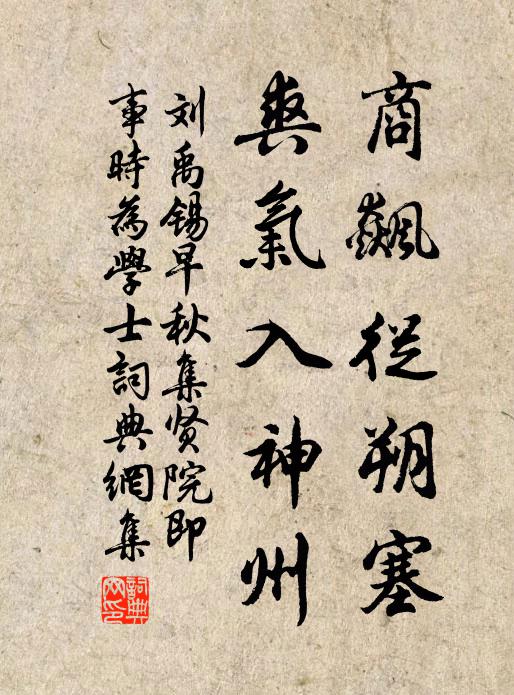 商飆從朔塞
爽氣入神州
刘禹锡早秋集贤院即
事時為學士詞典網集
詞典网印